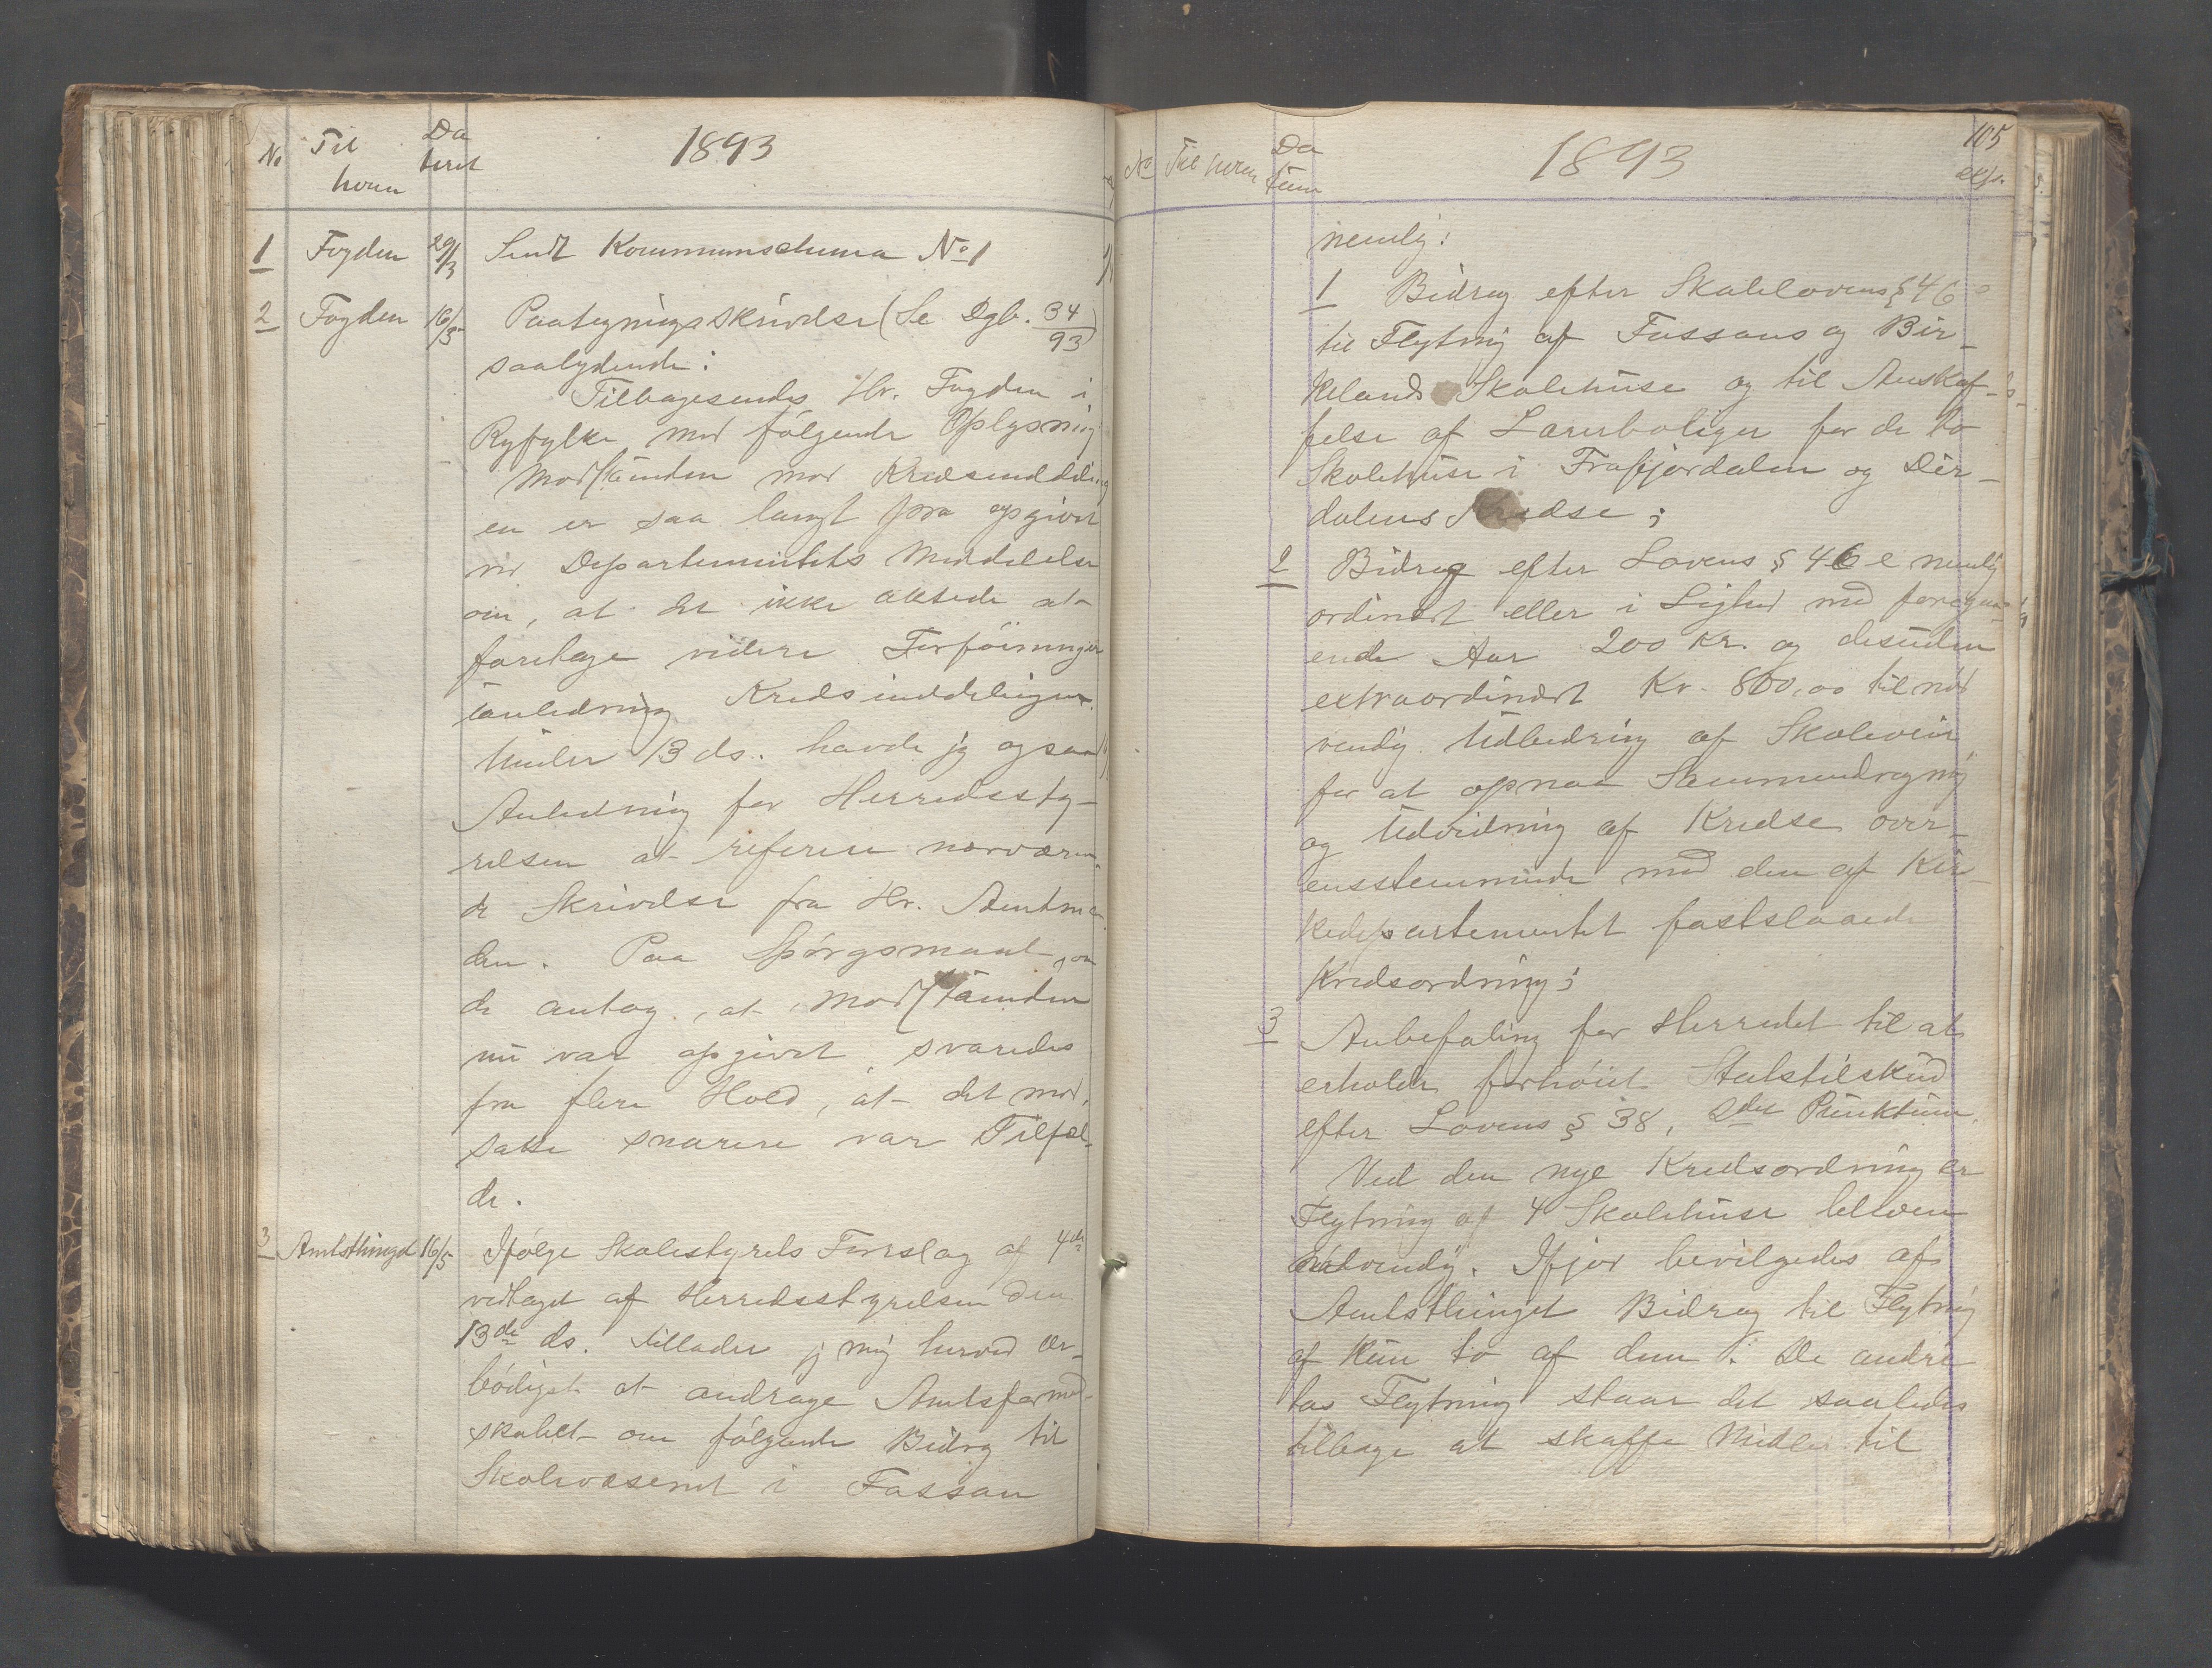 No Til hvem Da teret 1893
1 Fogden 29/3 Sendt Kommunschema No 1
2 Fogden 16/5 Paategningsskrivelse (Se Dgb. 34/93)
saalydende:
Tilbagesendes Hr. Fogden i
Ryfylke med følgende Oplysning
Modstanden mod Kredsinddeling
en er saa langt fra opgivet
ved Departementets Meddelelse
om, at det ikke aktede at
foretage videre Forføininger
ianledning Kredsinddelingen.
Under 13 ds. havde jeg ogsaa
Anledning for Herredssty-
relsen at referere nærværen-
de Skrivelse fra Hr. Amtman
den. Paa Spørgsmaal, om
de antog, at Modstanden
nu var opgivet, svaredes
fra flere Hold, at det mod-
satte snarere var Tilfæl-
de.
3 Amtsthinget 16/5 Ifølge Skolestyrets Forslag af 4de
vedtaget af Herredsstyrelsen den
13de ds. tillader jeg mig herved ær-
bødigst at andrage Amtsformand-
skabet om følgende Bidrag til
Skolevæsenet i Fossan
No Til hvem Da tum 1893 105 exp.
nemlig:
1 Bidrag efter Skolelovens § 46
til Flytning af Fossans og Bir-
kelands Skolehuse og til Anskaf-
felse af Lærerboliger for de to
Skolehuse i Frafjordalen og Dir-
dalens Kredse;
2 Bidrag efter Lovens § 46 e nemlig
ordinært eller i Lighed med foregaa-
ende Aar 200 Kr. og desuden
extraordinært Kr. 800,00 til nød
vendig Udbedring af Skoleveie
for at opnaa Sammendragning
og Udvidning af Kredse over-
ensstemmende med den af Kir-
kedepartementet fastslaaede
Kredsordning;
3 Anbefaling for Herredet til at
erholde forhøiet Statstilskud
efter Lovens § 38, 2det Punktum.
Ved den nye Kredsordning er
Flytning af 4 Skolehuse bleven
nødvendig. Ifjor bevilgedes af
Amtsthinget Bidrag til Flytning
af kun to af dem. De andre
tos Flytning staar det saaledes
tilbage at skaffe Midler til